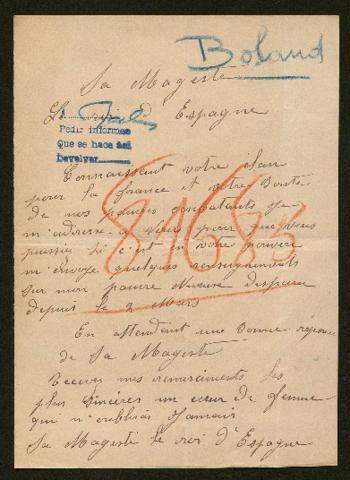 Boland
Sa Magesté
Le roi d Espagne
Pedir informes
Que se hace así
Devolver
Connaissant votre élan
pour la france et votre bonté
de nos pauvres combatants je
m'adresse a vous pour que vous
puissiez si c'est en votre pouvoir
m'envoyé quelques renseignements
sur mon pauvre Neveux disparu
depuis le 2 Mars
81688
En attendant une bonne réponse
de Sa Magesté
Recevez mes remerciments les
plus sincères un cœur de femme
qui n'oublira Jamais
Sa Magesté le roi d'Espagne